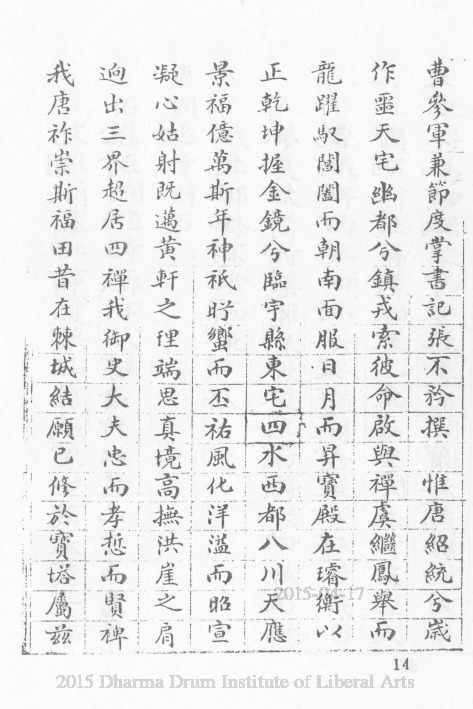 曹參軍兼節度掌書記張不矜撰　惟唐紹統兮歲
作噩天宅幽都兮鎮戎索彼命啟與禪虞繼鳳舉而
龍躍馭閶闔而朝南面服日月而昇寶殿在璿衡以
正乾坤握金鏡兮臨宇縣東宅四水西都八川天應
景福億萬斯年神祇肸蠁而丕祐風化洋溢而昭宣
凝心姑射既邁黃軒之理端思真境高撫洪崖之肩
迥出三界超居四禪我御史大夫忠而孝悊而賢裨
我唐祚崇斯福田昔在棘城結願已修於寶塔屬茲
2015-04-17
14
2015 Dharma Drum Institute of Liberal Arts